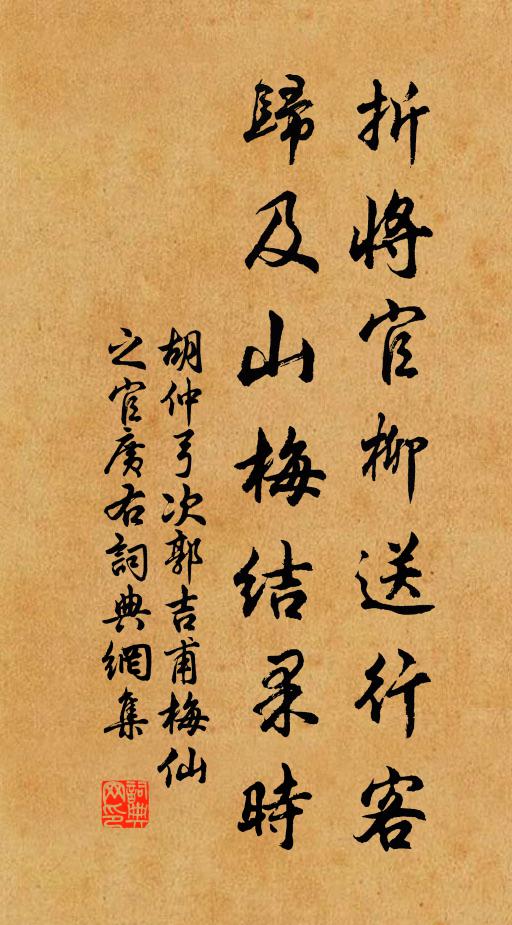 折將官柳送行客
歸及山梅結果時
胡仲弓次郭吉甫梅仙
之官廣右詞典網集
詞典網印